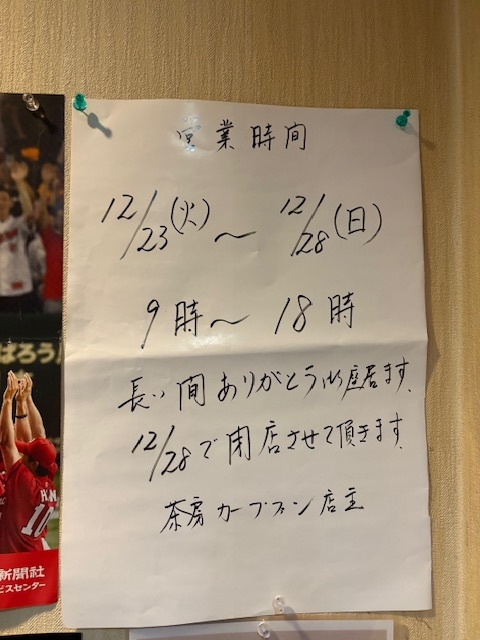 営業時間
12/23(火)～ 12/28(日)
9時～ 18時
長い間ありがとう御座居ます。
12/28で閉店させて頂きます。
茶房カープファン店主
ばろう
新聞社
ビスセンター
10